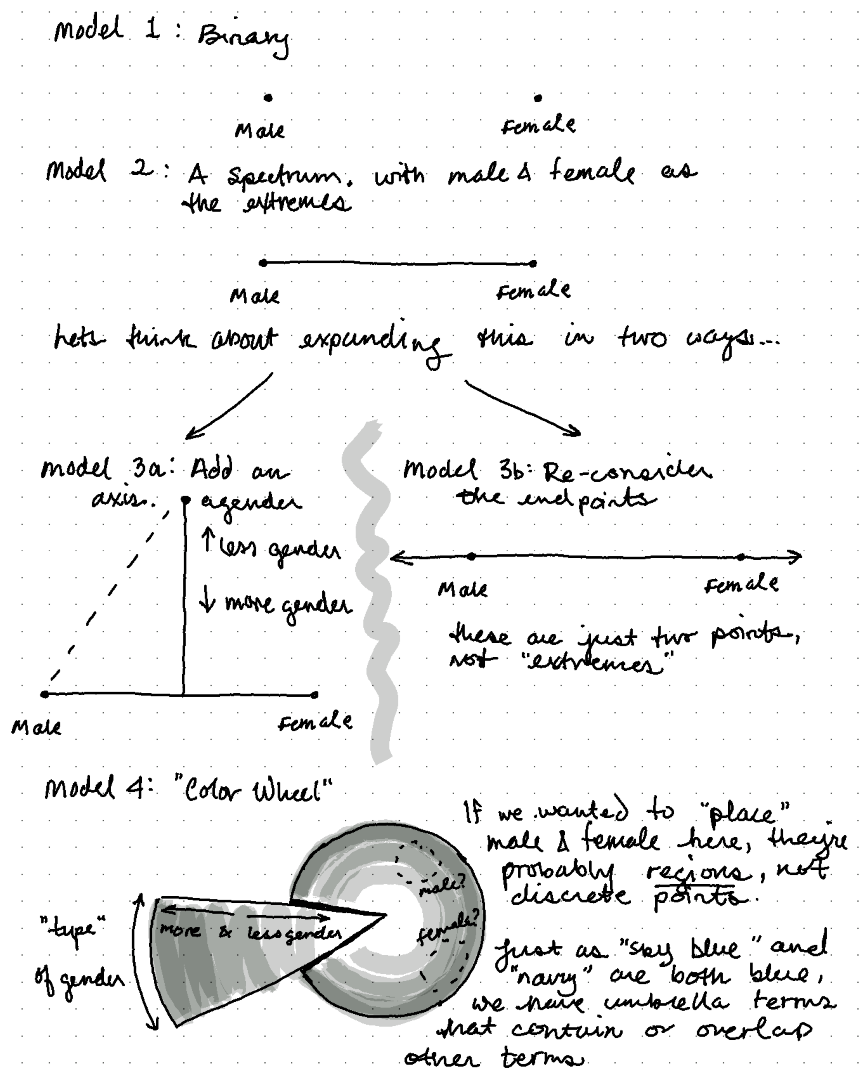 Model 1: Binary
Male
Female
Model 2: A spectrum, with male & female as
the extremes
Male
Female
Lets think about expanding this in two ways...
Model 3a: Add an
axis.
agender
↑ less gender
↓ more gender
Male
Female
Model 3b: Re-consider
the endpoints
Male
Female
these are just two points,
not "extremes"
Model 4: "Color Wheel"
"type"
of gender
more & less gender
male?
female?
If we wanted to "place"
male & female here, they're
probably regions, not
discrete points.
Just as "sky blue" and
"navy" are both blue,
we have umbrella terms
that contain or overlap
other terms